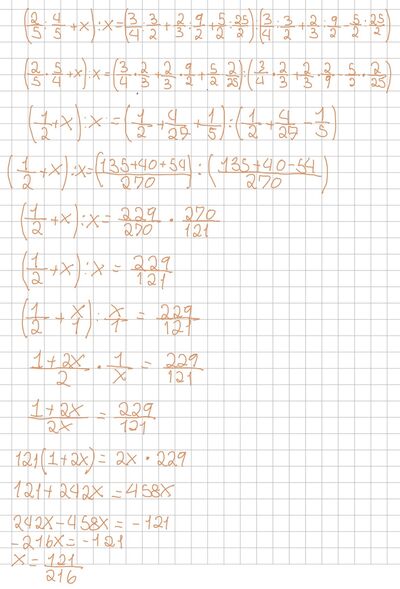 (2/5 : 4/5 + x) : x = (3/4 : 3/2 + 2/3 : 9/2 + 5/2 : 25/2) : (3/4 : 3/2 + 2/3 : 9/2 - 5/2 : 25/2)
(2/5 · 5/4 + x) : x = (3/4 · 2/3 + 2/3 · 9/2 + 5/2 · 2/25) : (3/4 · 2/3 + 2/3 · 2/9 - 5/2 · 2/25)
(1/2 + x) : x = (1/2 + 4/27 + 1/5) : (1/2 + 4/27 - 1/5)
(1/2 + x) : x = (135+40+54/270) : (135+40-54/270)
(1/2 + x) : x = 229/270 · 270/121
(1/2 + x) : x = 229/121
(1/2 + x/1) : x/1 = 229/121
1+2x/2 · 1/x = 229/121
1+2x/2x = 229/121
121(1+2x) = 2x · 229
121+242x = 458x
242x-458x = -121
-216x = -121
x = 121/216